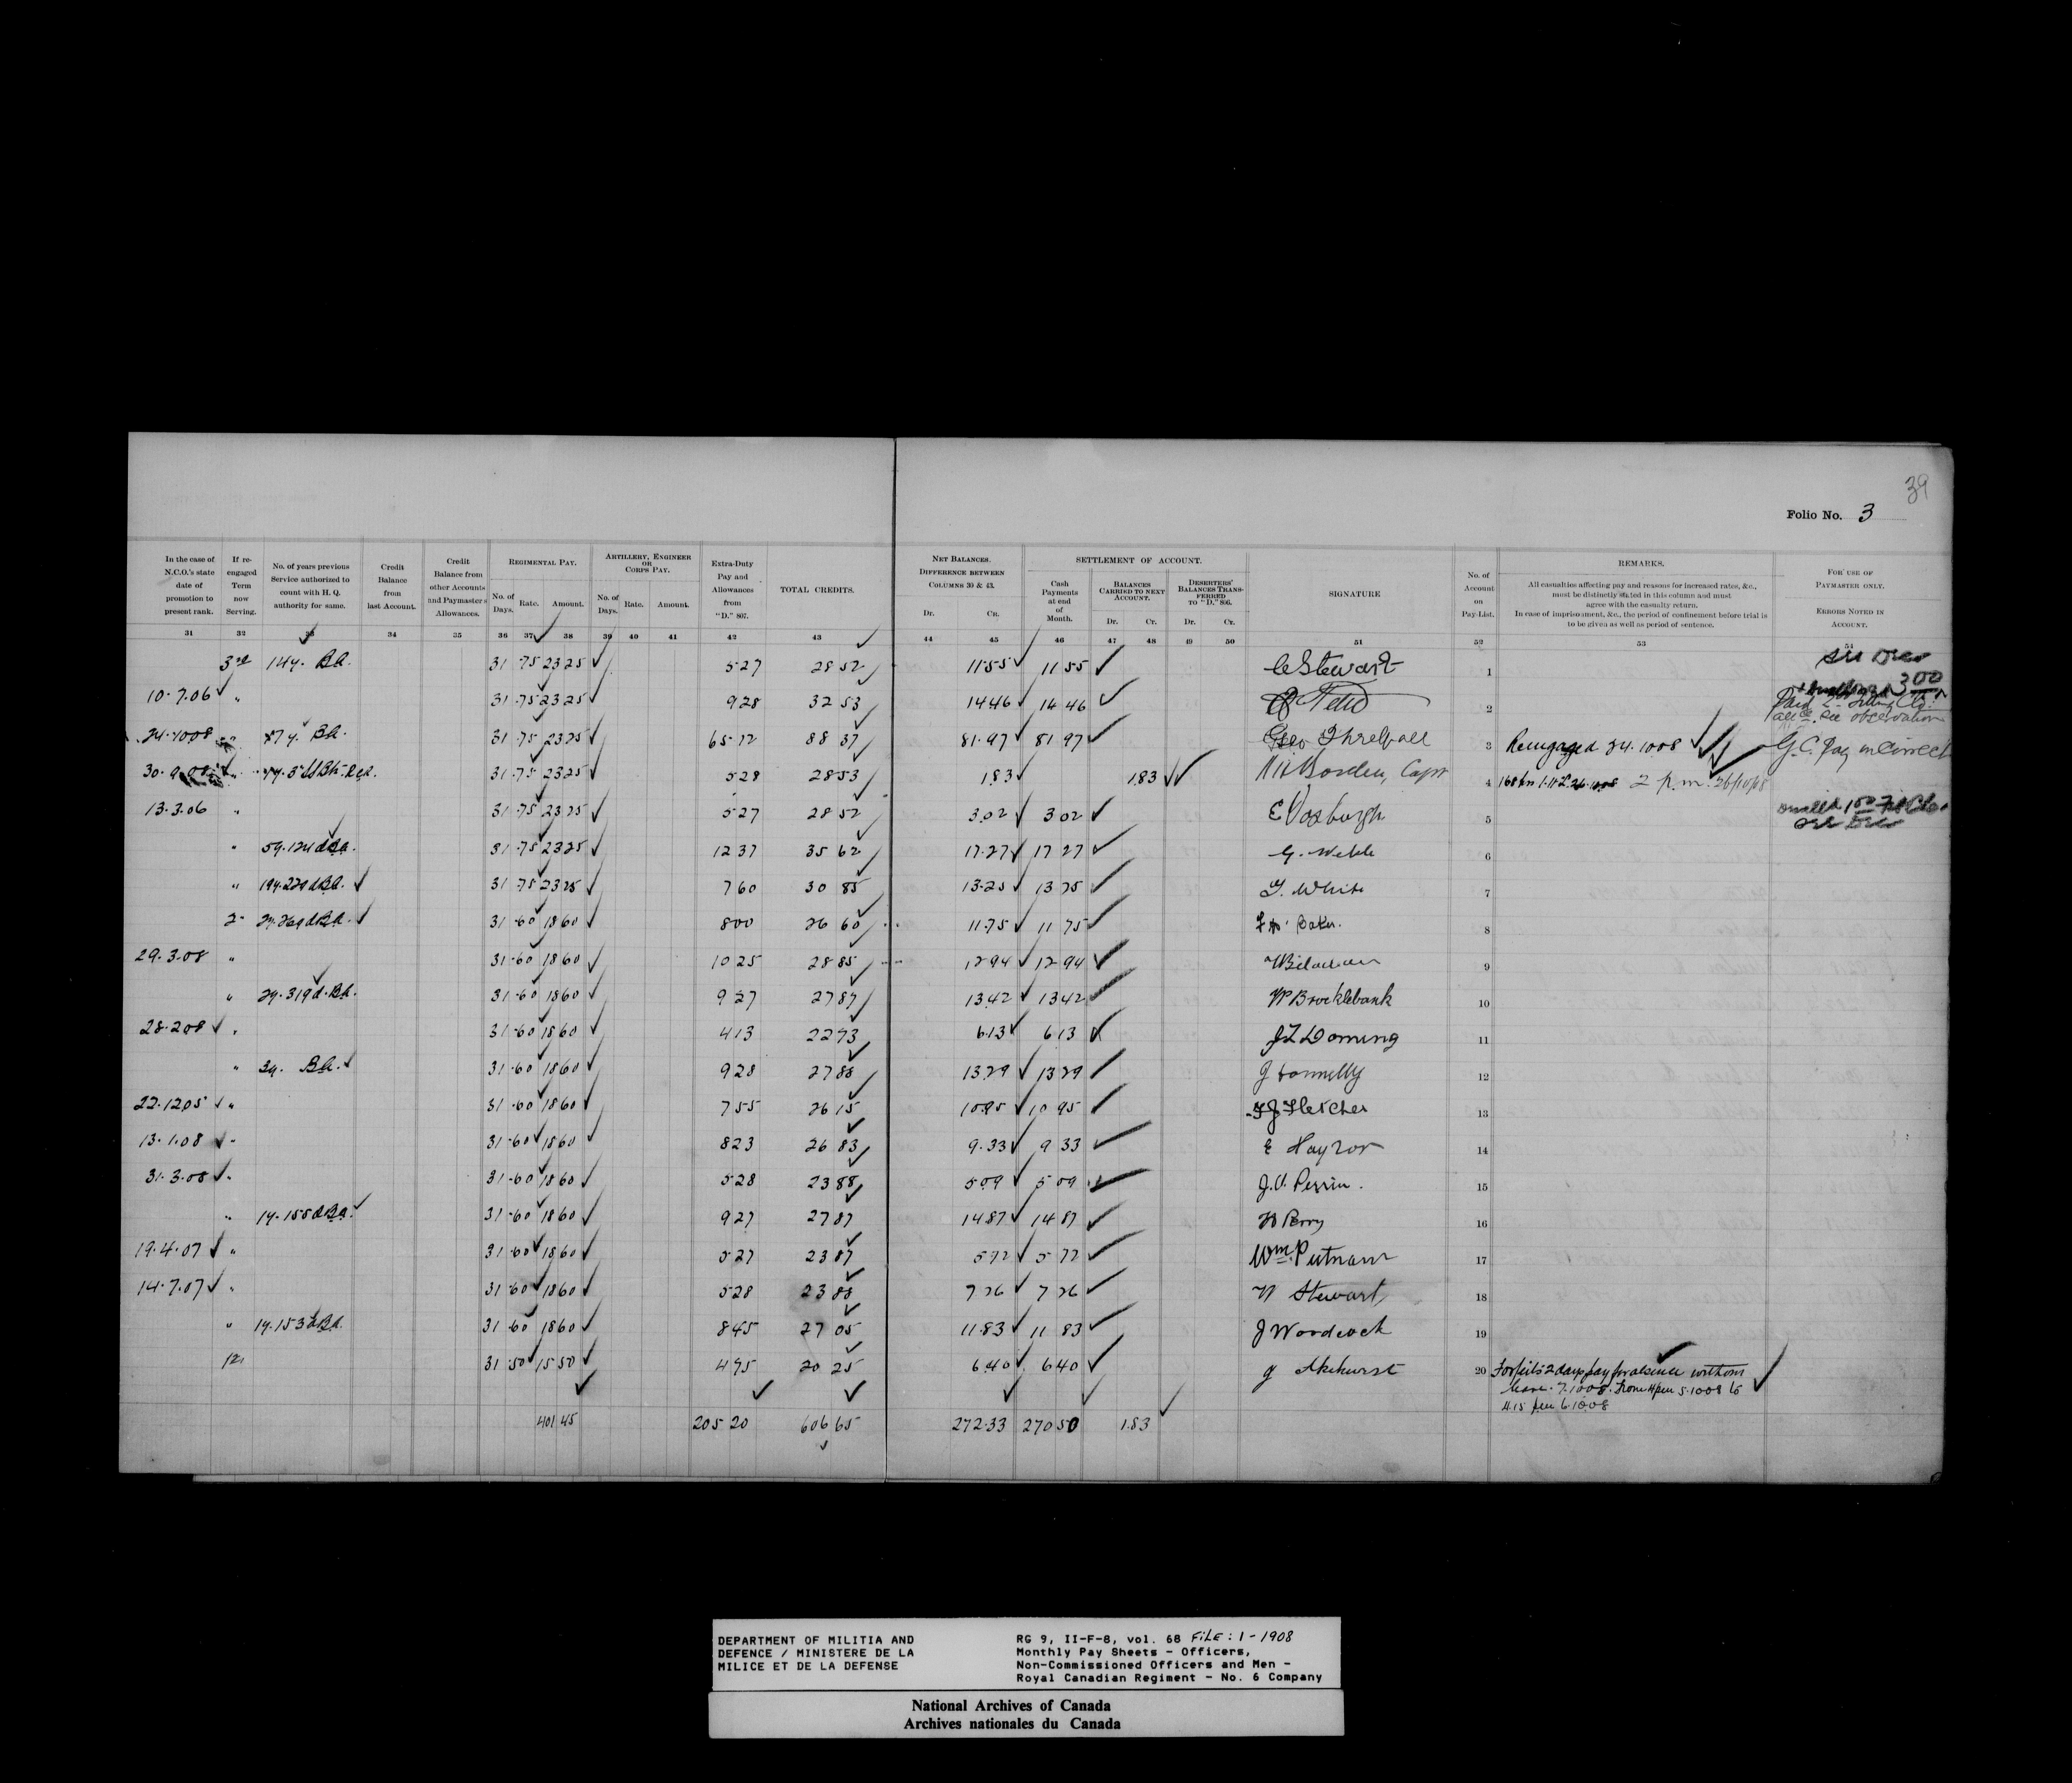 39
Folio No. 3
In the case of N.C.O.'s state date of promotion to present rank.
If re-engaged Term now Serving.
No. of years previous Service authorized to count with H. Q. authority for same.
Credit Balance from last Account.
Credit Balance from other Accounts and Paymaster's Allowances.
REGIMENTAL PAY.
No. of Days. Rate. Amount.
ARTILLERY, ENGINEER OR CORPS PAY.
No. of Days. Rate. Amount.
Extra-Duty Pay and Allowances from "D." 807.
TOTAL CREDITS.
NET BALANCES.
DIFFERENCE BETWEEN COLUMNS 30 & 43.
Dr. Cr.
SETTLEMENT OF ACCOUNT.
Cash Payments at end of Month.
BALANCES CARRIED TO NEXT ACCOUNT.
Dr. Cr.
DESERTERS' BALANCES TRANSFERRED TO "D." 806.
Dr. Cr.
SIGNATURE
No. of Account on Pay-List.
REMARKS.
All casualties affecting pay and reasons for increased rates, &c., must be distinctly stated in this column and must agree with the casualty return.
In case of imprisonment, &c., the period of confinement before trial is to be given as well as period of sentence.
FOR USE OF PAYMASTER ONLY.
ERRORS NOTED IN ACCOUNT.
31 32 33 34 35 36 37 38 39 40 41 42 43 44 45 46 47 48 49 50 51 52 53
3rd 14y. 31 .75 23 25 5 27 28 52 11.55 11 55 C Stewart 1
10.7.06 " 31 .75 23 25 9 28 32 53 14.46 14 46 2 300
24.10.08 31 .75 23 25 65 12 88 37 81.97 81 97 Geo Threlfall 3 Reengaged 24.10.08 G.C. Pay incorrect
30.9.08 31 .75 23 25 5 28 28 53 1.83 1.83 Borden, Capt 4 2 p.m. 26/10/08
13.3.06 " 31 .75 23 25 5 27 28 52 3.02 3 02 E Vosburgh 5
" 31 .75 23 25 12 37 35 62 17.27 17 27 G. Webb 6
" 31 .75 23 25 7 60 30 85 13.25 13 25 T. White 7
2 31 .60 18 60 8 00 26 60 11.75 11 75 Baker. 8
29.3.08 " 31 .60 18 60 10 25 28 85 12.94 12 94 9
" 2y.319d. 31 .60 18 60 9 27 27 87 13.42 13 42 W Brocklebank 10
28.2.08 " 31 .60 18 60 4 13 22 73 6.13 6 13 11
" 31 .60 18 60 9 28 27 88 13.29 13 29 J Donnelly 12
22.12.05 " 31 .60 18 60 7 55 26 15 10.95 10 95 J Fletcher 13
13.1.08 " 31 .60 18 60 8 23 26 83 9.33 9 33 E Haynor 14
31.3.08 " 31 .60 18 60 5 28 23 88 5.09 5 09 J. A. Perrin. 15
" 1y.155d 31 .60 18 60 9 27 27 87 14.87 14 87 H Perry 16
19.4.07 " 31 .60 18 60 5 27 23 87 5.72 5 72 Wm. Putnam 17
14.7.07 " 31 .60 18 60 5 28 23 88 7.26 7 26 W Stewart 18
" 1y.153d 31 .60 18 60 8 45 27 05 11.83 11 83 J Woodcock 19
31 .50 15 50 4 75 20 25 6.40 6 40 J Akehurst 20 Forfeits 2 days pay for absence without
leave. 7.10.08. From 4 pm 5.10.08 to
4.15 pm 6.10.08
401 45 205 20 606 65 272.33 270 50 1.83
DEPARTMENT OF MILITIA AND
DEFENCE / MINISTERE DE LA
MILICE ET DE LA DEFENSE
RG 9, II-F-8, vol. 68 FILE: 1-1908
Monthly Pay Sheets - Officers,
Non-Commissioned Officers and Men -
Royal Canadian Regiment - No. 6 Company
National Archives of Canada
Archives nationales du Canada